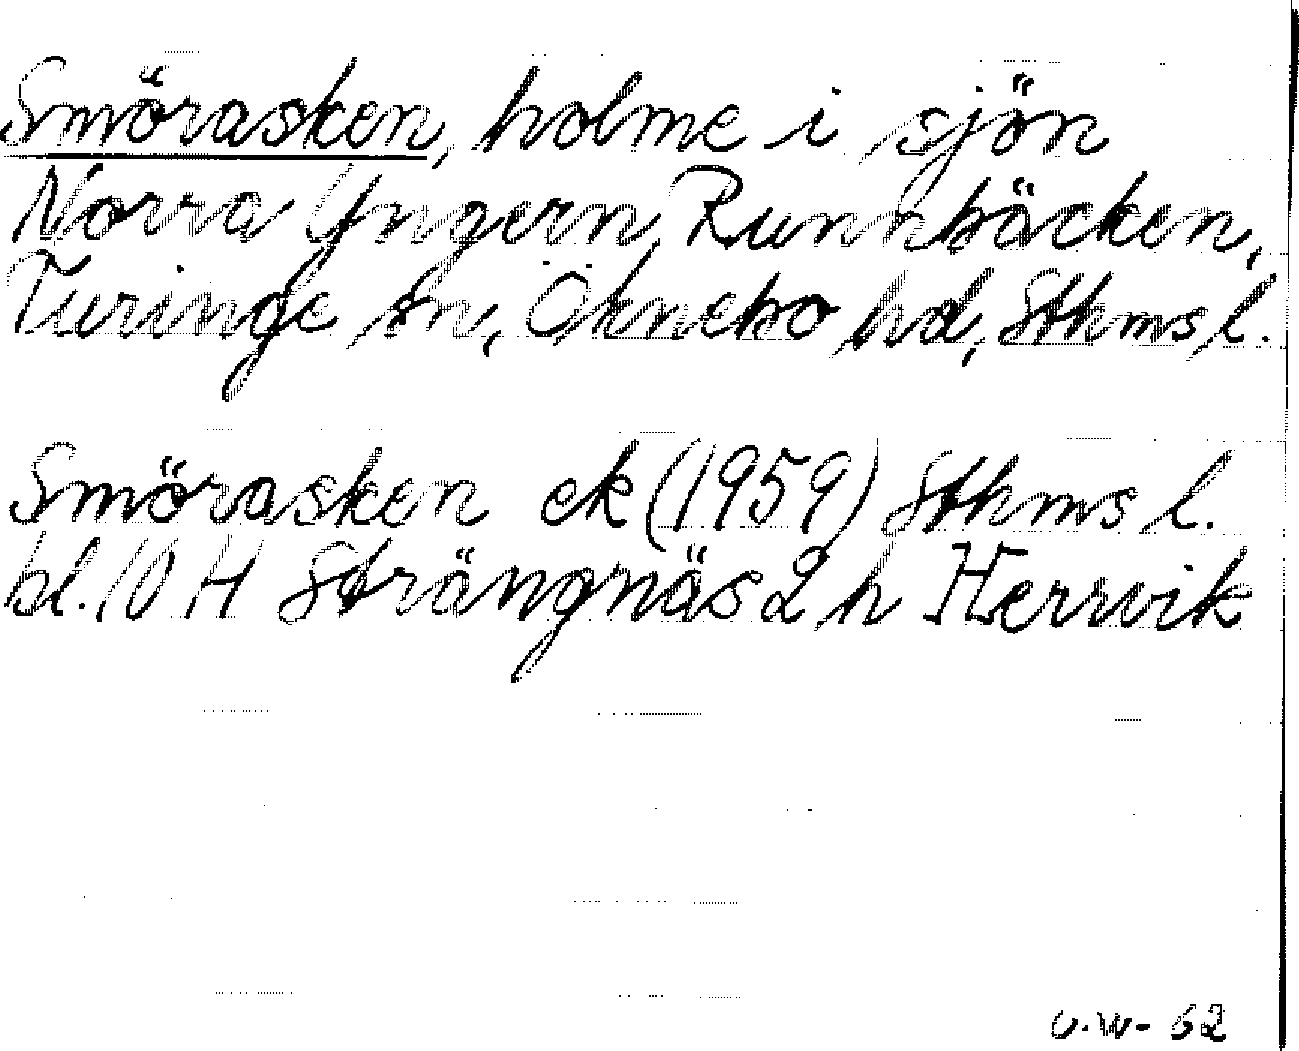 Smörasken, holme i sjön
Norra Yngern, Runnbäcken,
Turinge sn, Öknebo hd, Sthms l.
Smörasken ek (1959) Sthms l.
bl. 10 H Strängnäs 2 h Herrvik
U.W- 62